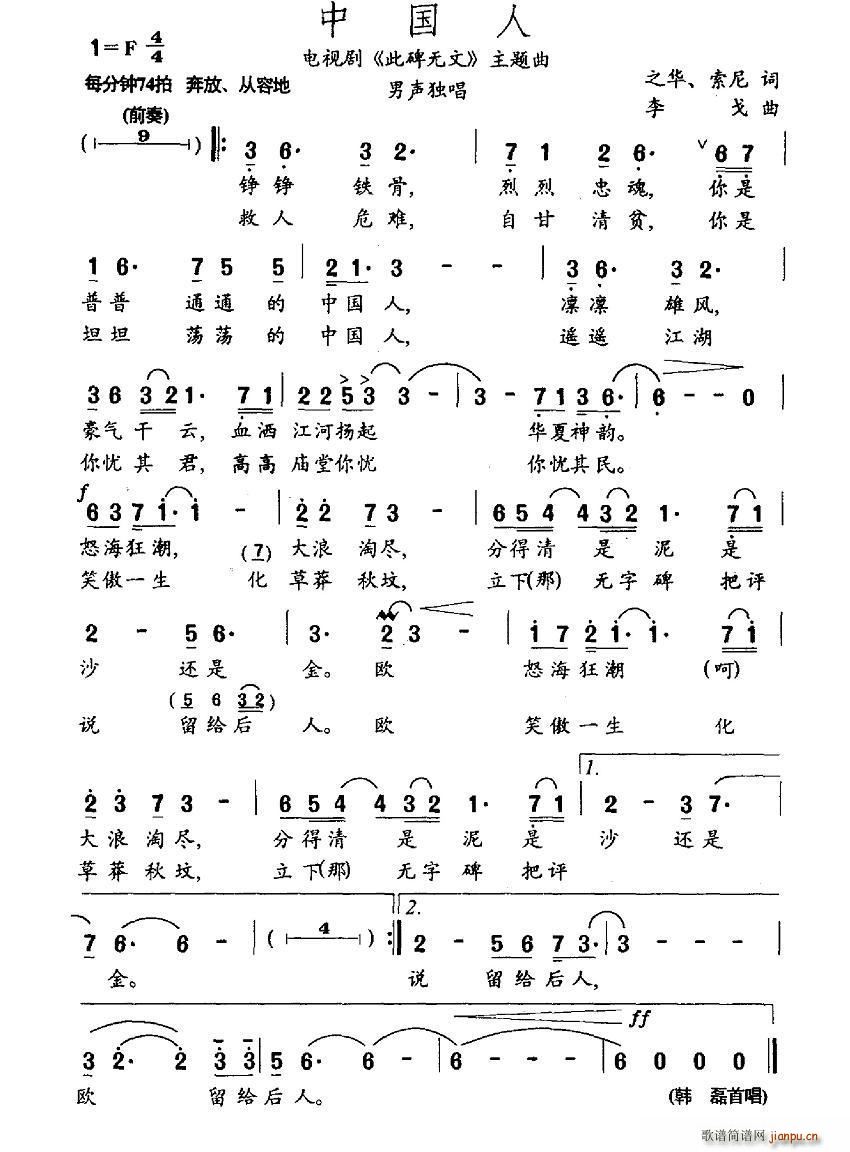 中国人
1=F 4/4
电视剧《此碑无文》主题曲
每分钟74拍 奔放、从容地
男声独唱
之华、索尼 词
李 戈 曲
(前奏)
9
3 6· 3 2· | 7 1 2 6· 6 7
铮铮 铁骨, 烈烈忠魂, 你是
救人 危难, 自甘清贫, 你是
1 6· 7 5 5 | 2 1· 3 - - | 3 6· 3 2· |
普普 通通的 中国人, 凛凛 雄风,
坦坦 荡荡的 中国人, 遥遥 江湖
3 6 3 2 1· 7 1 | 2 2 5 3 3 - | 3 - 7 1 3 6· | 6 - - 0 |
豪气干云, 血洒 江河扬起 华夏神韵。
你忧其君, 高高 庙堂你忧 你忧其民。
f
6 3 7 1· 1 - | 2 2 7 3 - | 6 5 4 4 3 2 1· 7 1 |
怒海狂潮, (7) 大浪 淘尽, 分得清 是 泥 是
笑傲一生 化 草莽 秋坟, 立下(那) 无字碑 把评
2 - 5 6· | 3· 2 3 - | 1 7 2 1· 1· 7 1 |
沙 还是 金。 欧 怒海狂潮 (呵)
(5 6 3 2)
说 留给后 人。 欧 笑傲一生 化
1.
2 3 7 3 - | 6 5 4 4 3 2 1· 7 1 | 2 - 3 7· |
大浪淘尽, 分得清 是 泥 是 沙 还是
草莽秋坟, 立下(那) 无字碑 把评
2.
7 6· 6 - | (4) :| 2 - 5 6 7 3· | 3 - - - |
金。 说 留给后人,
ff
3 2· 2 3 3 | 5 6· 6 - | 6 - - - | 6 0 0 0 ||
欧 留给后人。
(韩 磊首唱)
歌谱简谱网 jianpu.cn